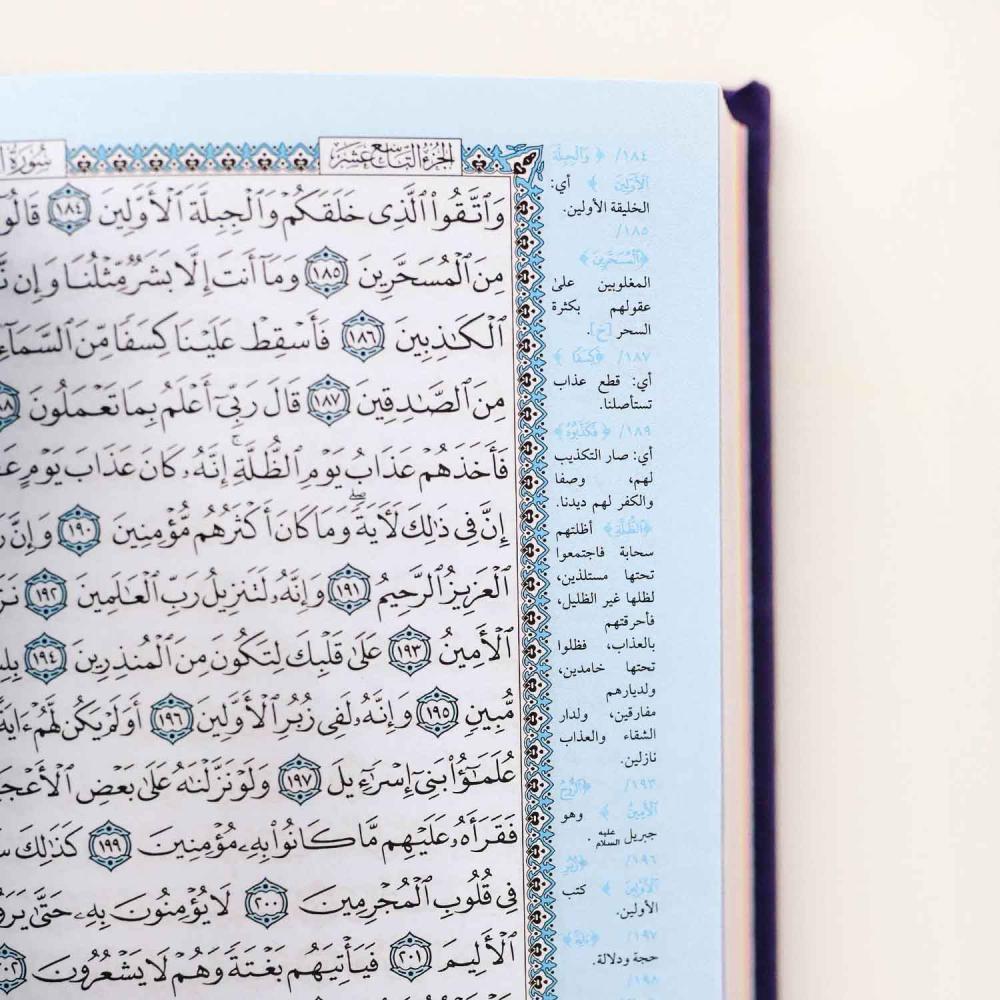 الجزء التاسع عشر
سُورَةُ
وَٱتَّقُواْ ٱلَّذِى خَلَقَكُمۡ وَٱلۡجِبِلَّةَ ٱلۡأَوَّلِينَ ١٨٤ قَالُوٓ
مِنَ ٱلۡمُسَحَّرِينَ ١٨٥ وَمَآ أَنتَ إِلَّا بَشَرٌ مِّثۡلُنَا وَإِن
ٱلۡكَٰذِبِينَ ١٨٦ فَأَسۡقِطۡ عَلَيۡنَا كِسَفًا مِّنَ ٱلسَّمَآءِ
مِنَ ٱلصَّٰدِقِينَ ١٨٧ قَالَ رَبِّىٓ أَعۡلَمُ بِمَا تَعۡمَلُونَ
فَأَخَذَهُمۡ عَذَابُ يَوۡمِ ٱلظُّلَّةِۚ إِنَّهُۥ كَانَ عَذَابَ يَوۡمٍ
إِنَّ فِى ذَٰلِكَ لَأٓيَةًۖ وَمَا كَانَ أَكۡثَرُهُم مُّؤۡمِنِينَ ١٩٠ وَإِنَّ
ٱلۡعَزِيزُ ٱلرَّحِيمُ ١٩١ وَإِنَّهُۥ لَتَنزِيلُ رَبِّ ٱلۡعَٰلَمِينَ ١٩٢
ٱلۡأَمِينُ ١٩٣ عَلَىٰ قَلۡبِكَ لِتَكُونَ مِنَ ٱلۡمُنذِرِينَ ١٩٤
مُّبِينٍ ١٩٥ وَإِنَّهُۥ لَفِى زُبُرِ ٱلۡأَوَّلِينَ ١٩٦ أَوَلَمۡ يَكُن لَّهُمۡ ءَايَةً
عُلَمَٰٓؤُاْ بَنِىٓ إِسۡرَٰٓءِيلَ ١٩٧ وَلَوۡ نَزَّلۡنَٰهُ عَلَىٰ بَعۡضِ ٱلۡأَعۡجَ
فَقَرَأَهُۥ عَلَيۡهِم مَّا كَانُواْ بِهِۦ مُؤۡمِنِينَ ١٩٩ كَذَٰلِكَ
فِى قُلُوبِ ٱلۡمُجۡرِمِينَ ٢٠٠ لَا يُؤۡمِنُونَ بِهِۦ حَتَّىٰ يَرَ
ٱلۡأَلِيمَ ٢٠١ فَيَأۡتِيَهُم بَغۡتَةً وَهُمۡ لَا يَشۡعُرُونَ ٢٠٢
١٨٤/ ﴿ وَٱلۡجِبِلَّةَ
ٱلۡأَوَّلِينَ ﴾ أي:
الخليقة الأولين.
١٨٥/
﴿ٱلۡمُسَحَّرِينَ﴾
المغلوبين على
عقولهم بكثرة
السحر [خ].
١٨٧/ ﴿كِسَفًا ﴾
أي: قطع عذاب
تستأصلنا.
١٨٩/ ﴿ فَكَذَّبُوهُ﴾
أي: صار التكذيب
لهم، وصفا
والكفر لهم ديدنا.
﴿ٱلظُّلَّةِ﴾ أظلتهم
سحابة فاجتمعوا
تحتها مستلذين،
لظلها غير الظليل،
فأحرقتهم
بالعذاب، فظلوا
تحتها خامدين،
ولديارهم
مفارقين، ولدار
الشقاء والعذاب
نازلين.
١٩٣/ ﴿ٱلرُّوحُ
ٱلۡأَمِينُ ﴾ وهو
جبريل عليه السلام.
١٩٦/ ﴿زُبُرِ
ٱلۡأَوَّلِينَ ﴾ كتب
الأولين.
١٩٧/ ﴿ءَايَةً﴾
حجة ودلالة.
١٩٨/